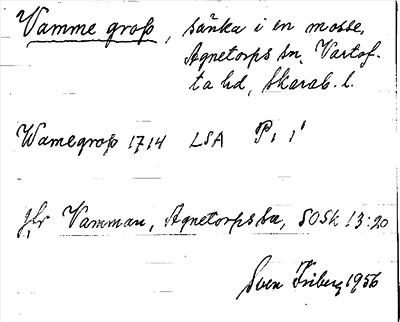 Vamme grop, sänka i en mosse,
Agnetorps sn, Vartof-
ta hd, Skarab. l.
Wamegrop 1714 LSA P 1 1
Jfr Vamman, Agnetorps sn, SOSk 13:20
Sven Friberg 1956